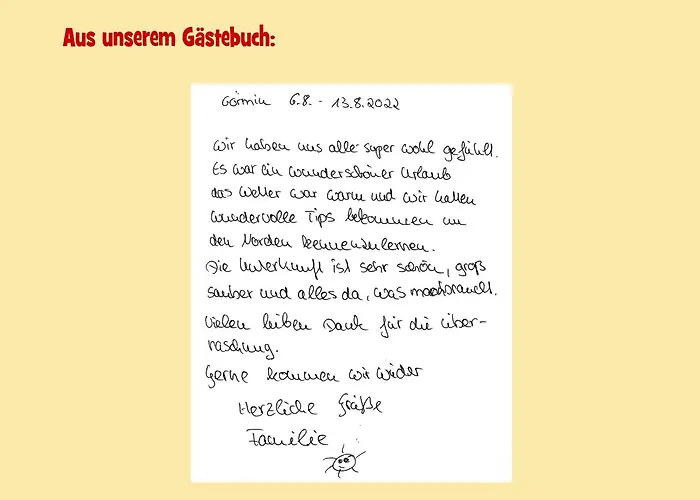 Aus unserem Gästebuch:
Görmin 6.8. - 13.8.2022
Wir haben uns alle super wohl gefühlt.
Es war ein wunderschöner Urlaub
das Wetter war warm und wir haben
wundervolle Tips bekommen um
den Norden kennenzulernen.
Die Unterkunft ist sehr schön, groß
sauber und alles da, was man braucht.
Vielen lieben Dank für die Über-
raschung.
Gerne kommen wir wieder
Herzliche Grüße
Familie